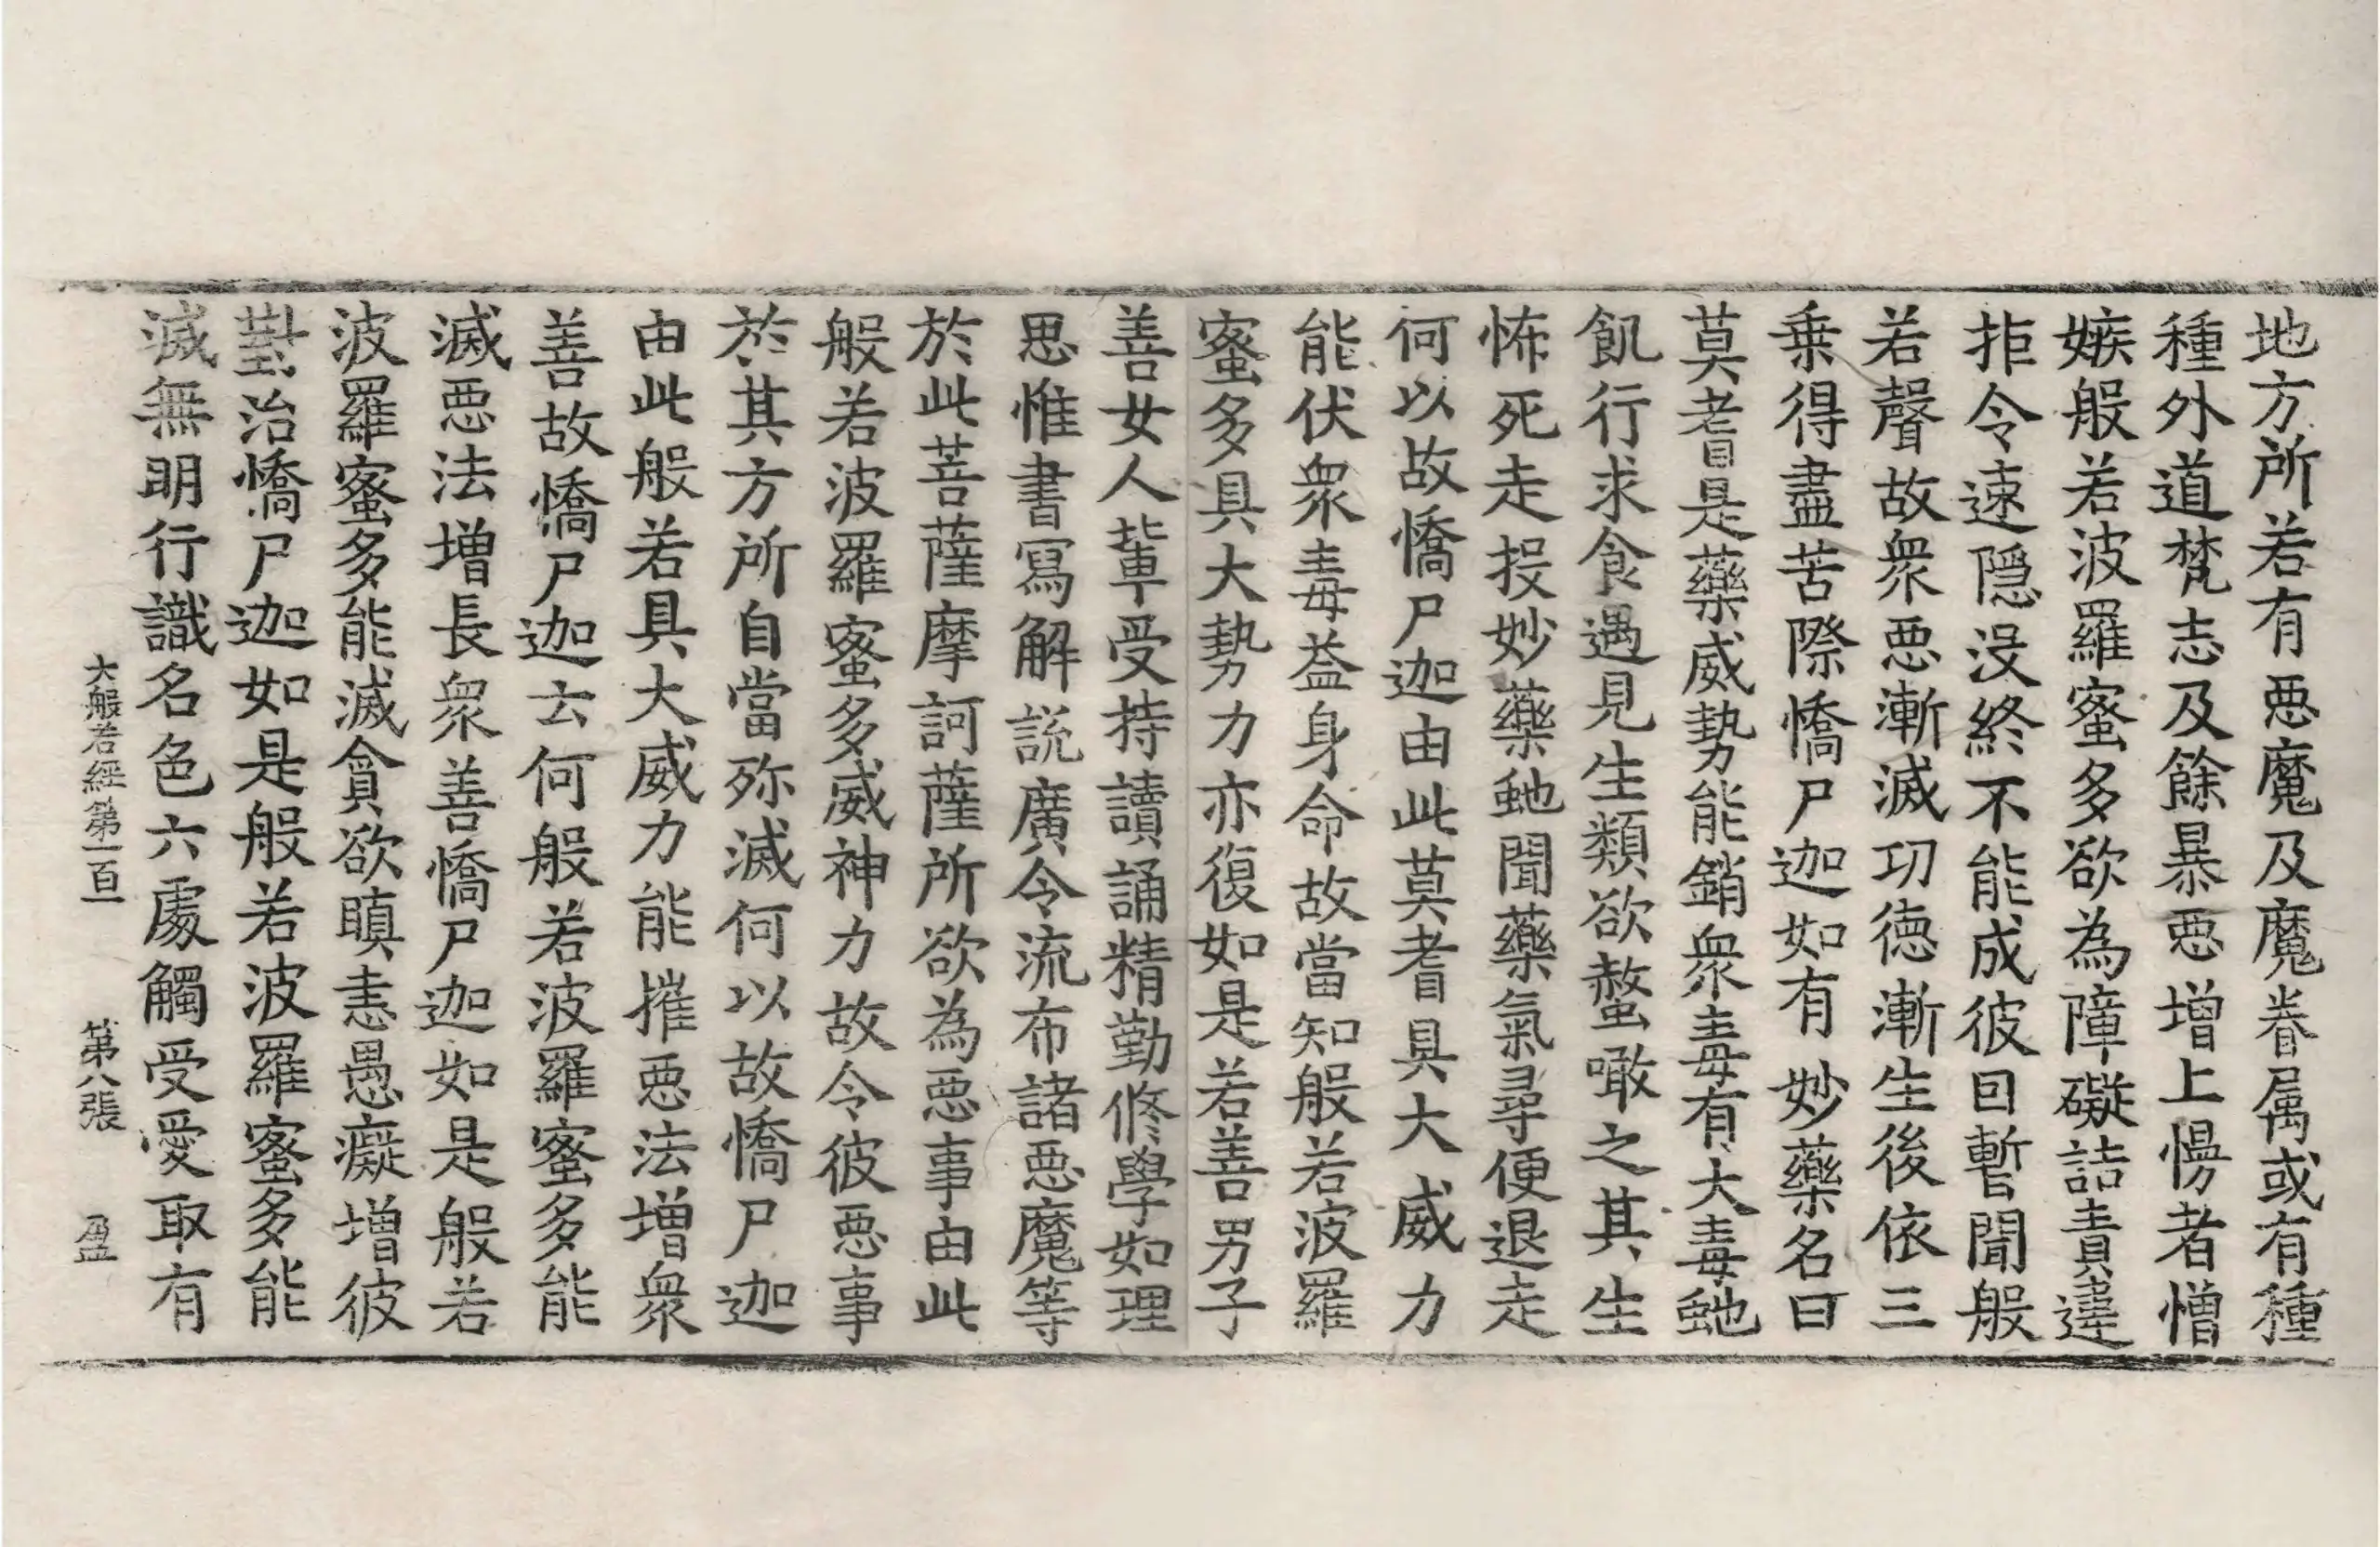 地方所若有惡魔及魔眷属或有種
種外道梵志及餘暴惡增上慢者憎
嫉般若波羅蜜多欲為障礙詰責違
拒令速隱没終不能成彼因暫聞般
若聲故衆惡漸滅功德漸生後依三
乗得盡苦際憍尸迦如有妙藥名曰
莫耆是藥威勢能銷衆毒有大毒虵
飢行求食遇見生類欲螫噉之其生
怖死走投妙藥虵聞藥氣尋便退走
何以故憍尸迦由此莫耆具大威力
能伏衆毒益身命故當知般若波羅
蜜多具大勢力亦復如是若善男子
善女人輩受持讀誦精勤修學如理
思惟書寫解説廣令流布諸惡魔等
於此菩薩摩訶薩所欲為惡事由此
般若波羅蜜多威神力故令彼惡事
於其方所自當殄滅何以故憍尸迦
由此般若具大威力能摧惡法增衆
善故憍尸迦云何般若波羅蜜多能
滅惡法增長衆善憍尸迦如是般若
波羅蜜多能滅貪欲瞋恚愚癡增彼
對治憍尸迦如是般若波羅蜜多能
滅無明行識名色六處觸受愛取有
大般若經第一百一　第八張　盈